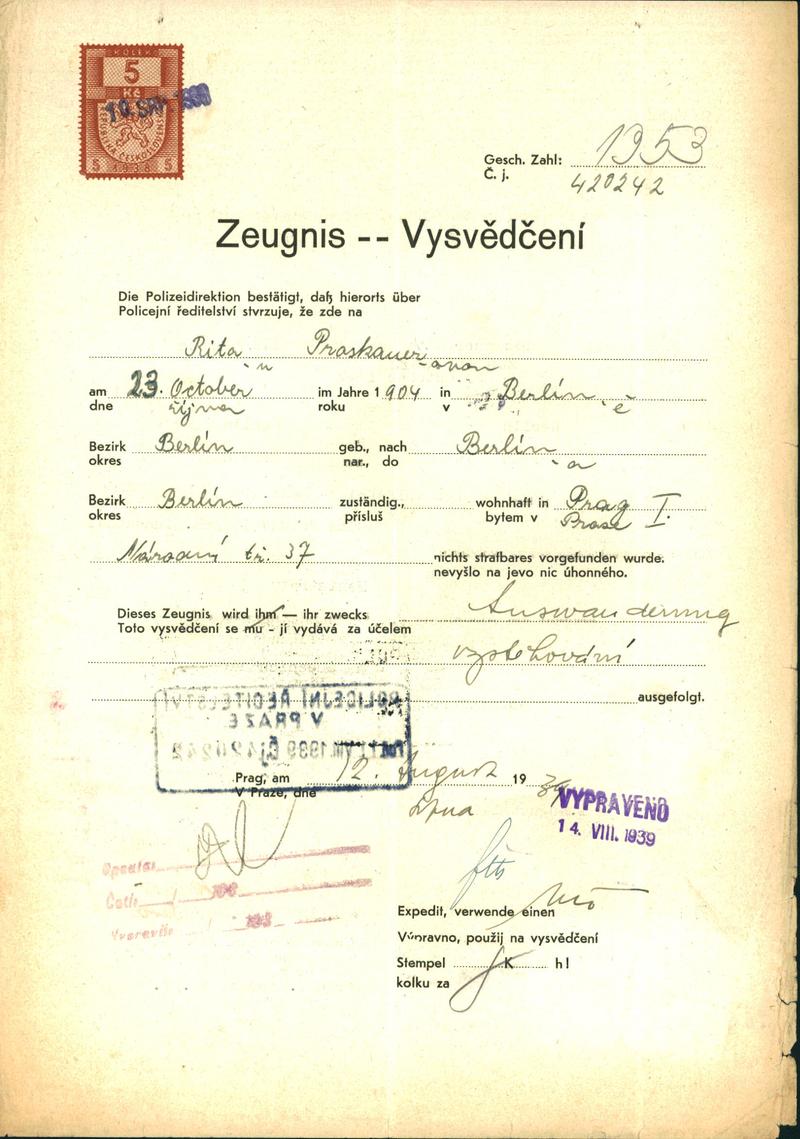 KOLEK
5
Kč
REPUBLIKA ČESKOSLOVENSKÁ
5 1938 5
Gesch. Zahl: 1953
Č. j. 420242
Zeugnis -- Vysvědčení
Die Polizeidirektion bestätigt, daß hierorts über
Policejní ředitelství stvrzuje, že zde na
Rita Proskauer
-u -ovou
am 23. October im Jahre 1904 in Berlín
dne října roku v -ě
Bezirk Berlín geb., nach Berlín
okres nar., do -a
Bezirk Berlín zuständig., wohnhaft in Prag I.
okres přísluš bytem v Praze
Národní tř. 37 nichts strafbares vorgefunden wurde.
nevyšlo na jevo nic úhonného.
Dieses Zeugnis wird ihm — ihr zwecks Auswanderung
Toto vysvědčení se mu - jí vydává za účelem
vystěhování
ausgefolgt.
POLICEJNÍ ŘEDITELSTVÍ
V PRAZE
VIII. 1939 Čj 420242
Prag, am 12. August 1939
V Praze, dne srpna
VYPRAVENO
14. VIII. 1939
Opsal:
Četl:
Vypravilo
Expedit, verwende einen
Výpravno, použij na vysvědčení
Stempel K hl
kolku za